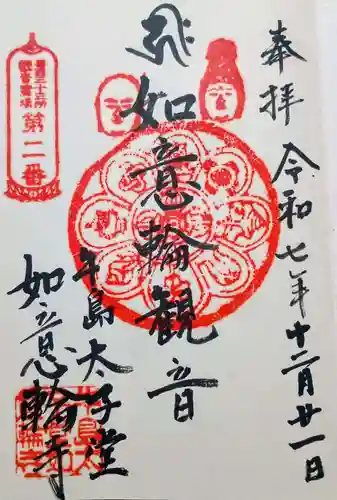 奉拝
令和七年十二月廿一日
如意輪観音
牛島太子堂
如意輪寺
観音霊場
第二番